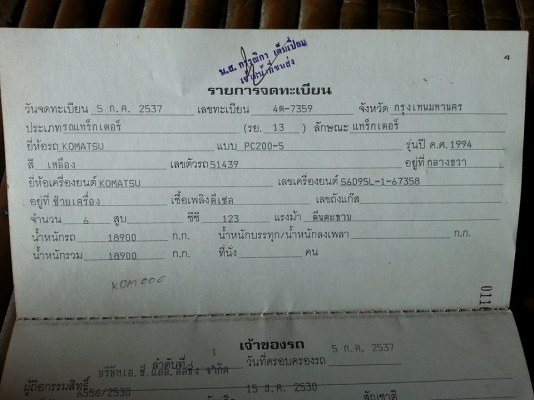 4
น.ส. กรรณิกา เต็มเปี่ยม
เจ้าหน้าที่ขนส่ง
รายการจดทะเบียน
วันจดทะเบียน 5 ก.ค. 2537 เลขทะเบียน 4ต-7359 จังหวัด กรุงเทพมหานคร
ประเภทรถแทร็กเตอร์ (รย. 13 ) ลักษณะ แทร็กเตอร์
ยี่ห้อรถ KOMATSU แบบ PC200-5 รุ่นปี ค.ศ. 1994
สี เหลือง เลขตัวรถ 51439 อยู่ที่ กลางขวา
ยี่ห้อเครื่องยนต์ KOMATSU เลขเครื่องยนต์ S6D95L-1-67358
อยู่ที่ ซ้ายเครื่อง เชื้อเพลิง ดีเซล เลขถังแก๊ส
จำนวน 6 สูบ ซีซี 123 แรงม้า ตีนตะขาบ
น้ำหนักรถ 18900 ก.ก. น้ำหนักบรรทุก/น้ำหนักลงเพลา ก.ก.
น้ำหนักรวม 18900 ก.ก. ที่นั่ง คน
KOM006
011
เจ้าของรถ
ลำดับที่ 1 วันที่ครอบครองรถ 5 ก.ค. 2537
ผู้ถือกรรมสิทธิ์ บริษัทเอ.ซี.แอล.ลีสซิ่ง จำกัด
6556/2530 15 ส.ค. 2530 สัญชาติ